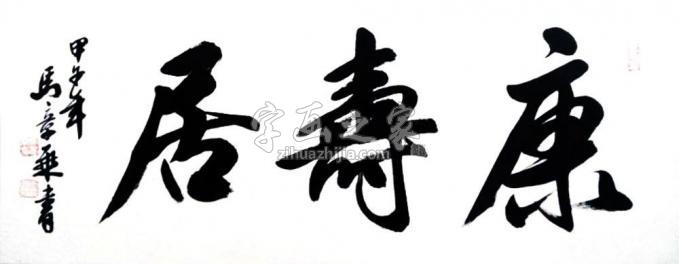 康壽居
甲午年
馬章乘書
字画之家
zihuazhijia.com